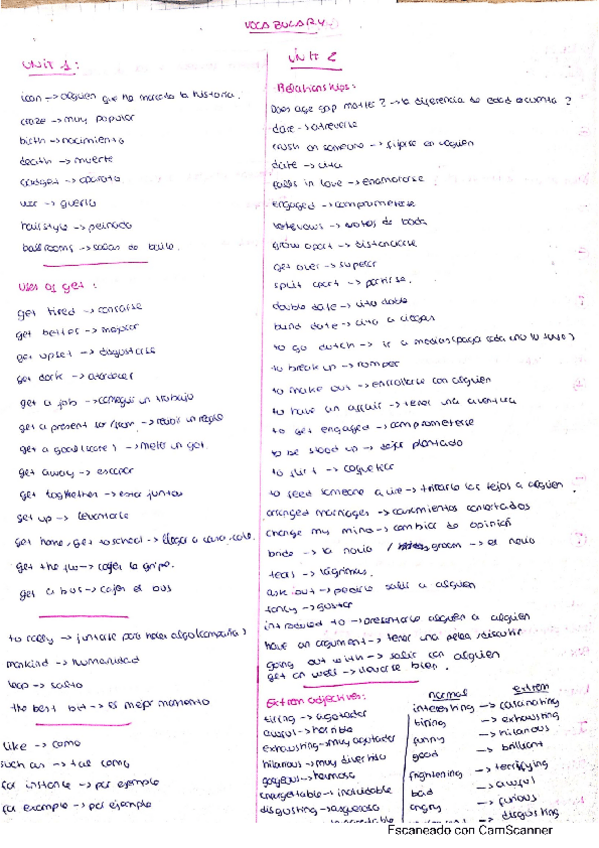 VOCABULARY
UNIT 1:
icon -> alguien que ha marcado la historia.
craze -> muy popular
birth -> nacimiento
death -> muerte
gadget -> aparato
war -> guerra
hairstyle -> peinado
ballrooms -> salas de baile.
Uses of get:
get tired -> cansarse
get better -> mejorar
get upset -> disgustarse
get dark -> atardecer
get a job -> conseguir un trabajo
get a present for/from -> recibir un regalo
get a goal (score) -> meter un gol.
get away -> escapar
get together -> estar juntos
get up -> levantarse
get home, get to school -> llegar a casa, cole.
get the flu -> coger la gripe.
get a bus -> coger el bus
to rally -> juntarse para hacer algo (campaña)
mankind -> humanidad
leap -> salto
the best bit -> el mejor momento
like -> como
such as -> tal como
for instance -> por ejemplo
for example -> por ejemplo
UNIT 2
Relationships:
Does age gap matter? -> la diferencia de edad cuenta?
dare -> atreverse
crush on someone -> fijarse en alguien
date -> cita
falls in love -> enamorarse
engaged -> comprometerse
votos de boda
grow apart -> distanciarse
get over -> superar
split apart -> partirse.
double date -> cita doble
blind date -> cita a ciegas
to go dutch -> ir a medias (paga cada uno lo suyo)
to break up -> romper
to make out -> enrollarse con alguien
to have an affair -> tener una aventura
to get engaged -> comprometerse
to be stood up -> dejar plantado
to flirt -> coquetear
to feed someone a line -> tirarle los tejos a alguien
arranged marriages -> casamientos concertados
change my mind -> cambiar de opinión
bride -> la novia / groom -> el novio
tears -> lágrimas.
ask out -> pedirle salir a alguien
fancy -> gustar
introduced to -> presentarle alguien a alguien
have an argument -> tener una pelea/discutir
going out with -> salir con alguien
get on well -> llevarse bien.
Extrem adjectives:
tiring -> agotador
awful -> horrible
exhausting -> muy agotador
hilarious -> muy divertido
gorgeous -> hermoso
unforgettable -> inolvidable
disgusting -> asqueroso
normal extrem
interesting -> fascinating
tiring -> exhausting
funny -> hilarious
good -> brilliant
frightening -> terrifying
bad -> awful
angry -> furious
-> disgusting
Escaneado con CamScanner